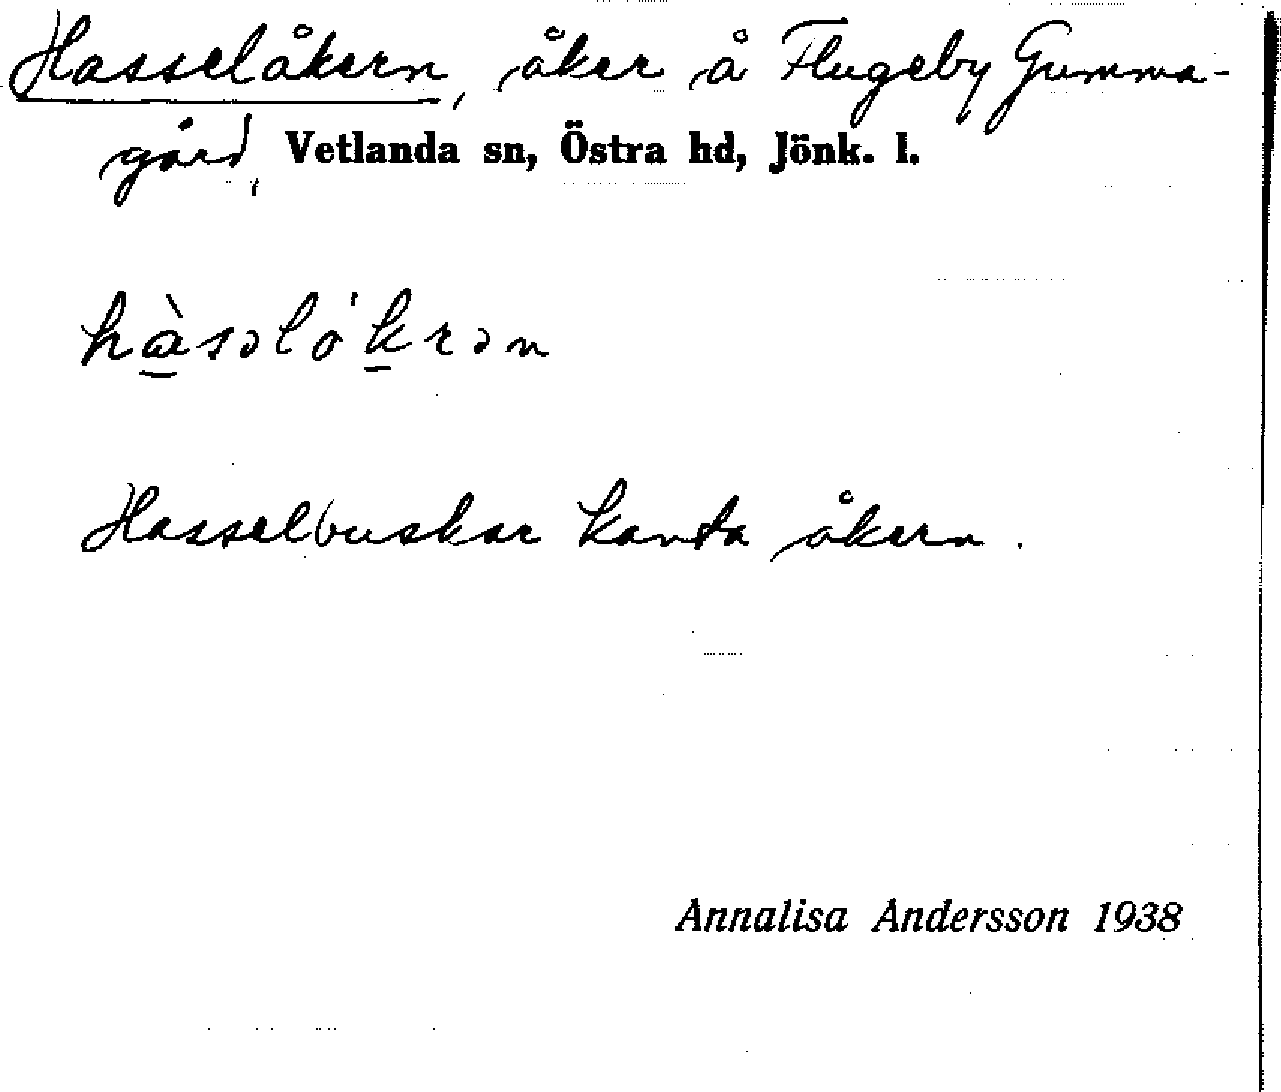 Hasselåkern, åker å Flugeby Gumma-
gård, Vetlanda sn, Östra hd, Jönk. l.
hàsəlo̍krən
Hasselbuskar kanta åkern.
Annalisa Andersson 1938